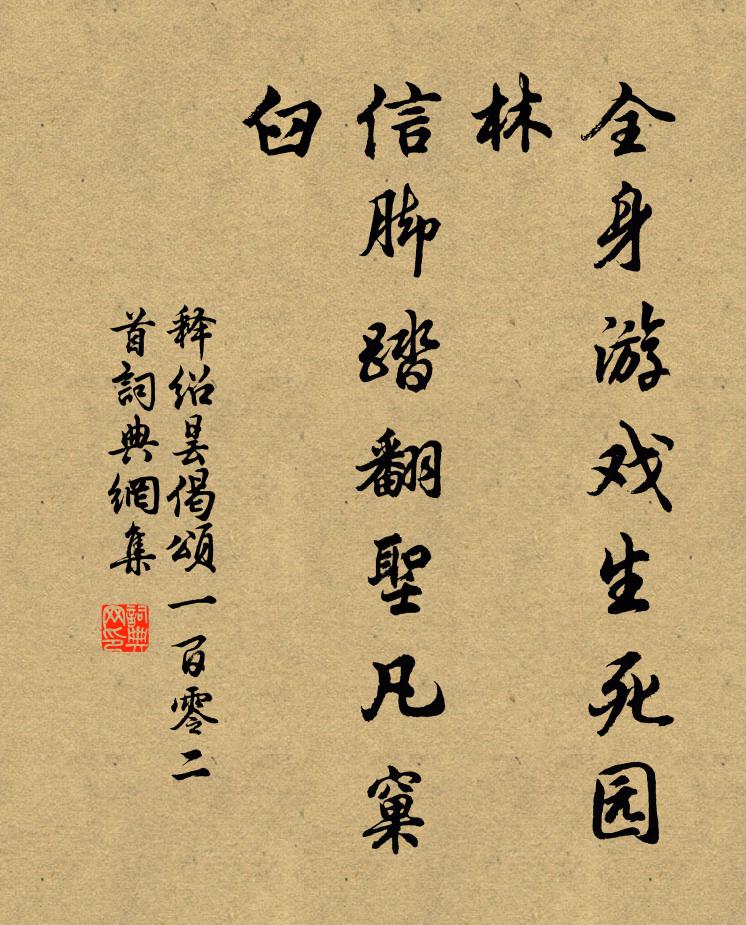 全身游戏生死园
林
信脚踏翻聖凡窠
臼
释绍昙偈頌一百零二
首詞典網集
詞典
网印